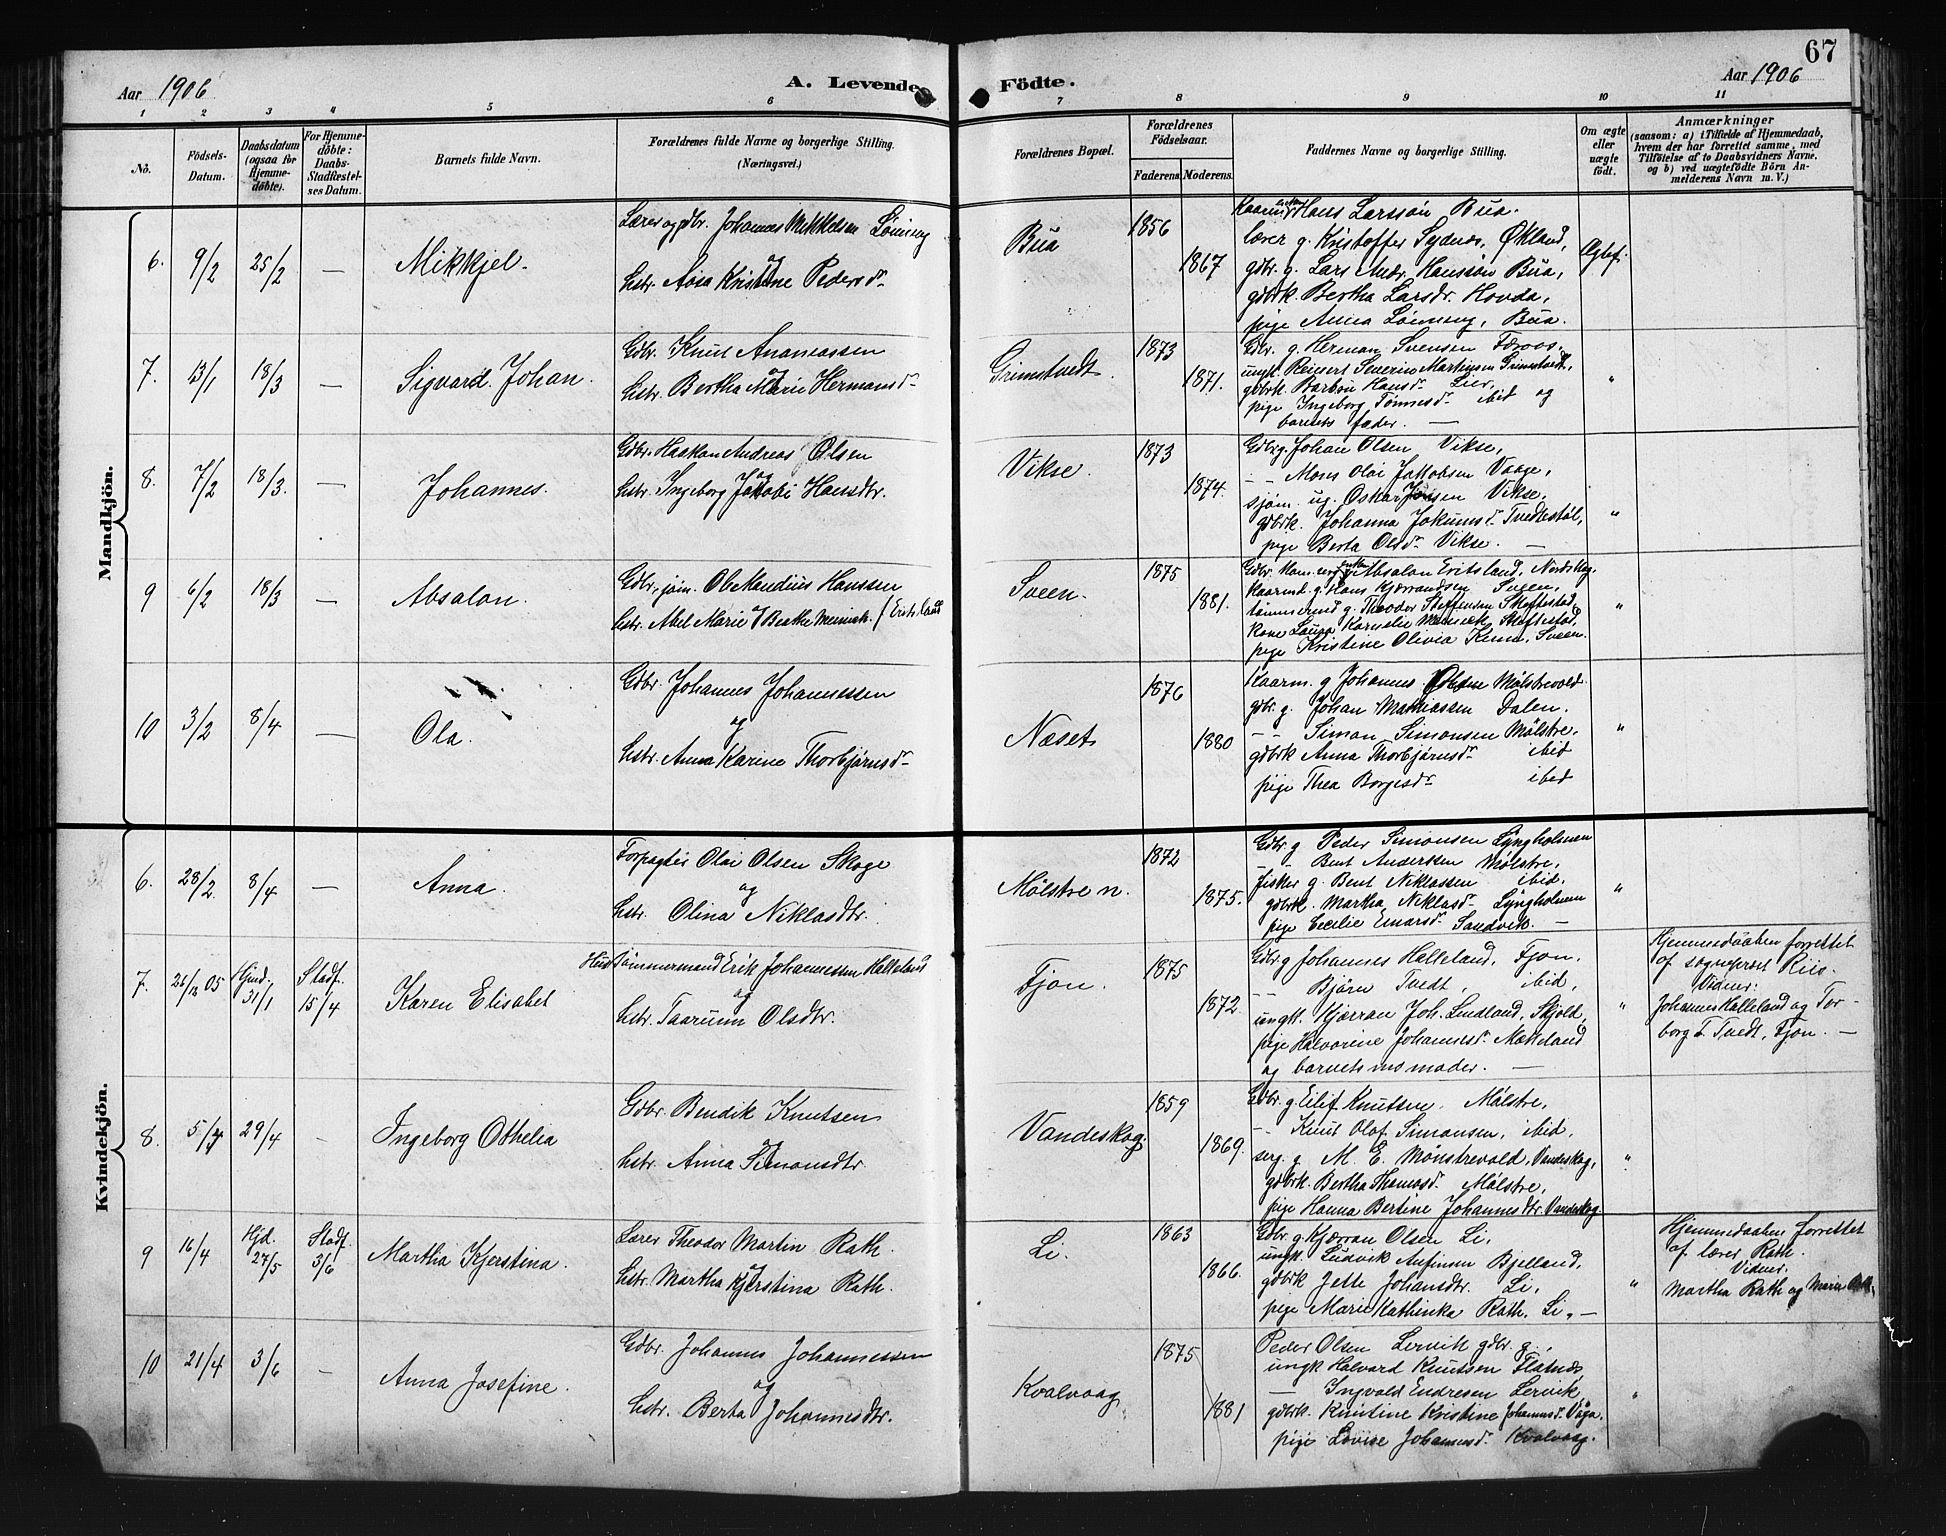 67
Aar 1906 A. Levende Födte. Aar 1906
1 2 3 4 5 6 7 8 9 10 11
No.
Födsels-Datum.
Daabsdatum (ogsaa for Hjemmedöbte).
For Hjemmedöbte: Daabs-Stadfæstelses Datum.
Barnets fulde Navn.
Forældrenes fulde Navne og borgerlige Stilling.
(Næringsvei.)
Forældrenes Bopæl.
Forældrenes Födselsaar.
Faderens Moderens
Faddernes Navne og borgerlige Stilling.
Om ægte eller uægte födt.
Anmærkninger
(saasom: a) i Tilfælde af Hjemmedaab,
hvem der har forrettet samme, med
Tilföielse af to Daabsvidners Navne.
og b) ved uægtefödte Börn An-
melderens Navn m. V.)
Mandkjön.
6. 9/2 25/2 — Mikkjel.
Lærer og gdbr. Johannes Mikkelsen Lönning
og
hstr. Aasa Kristine Pedersdr
Bua 1856 1867
Hans Larsson Bua.
lærer g. Kristoffer Sydnes, Økland,
gdbr. g. Lars Andr. Hansson Bua,
gdbrk. Bertha Larsdr. Hovda,
pige Anna Lönning, Bua.
7. 13/1 18/3 — Sigvard Johan.
Gdbr. Knut Ananiassen
og
hstr. Bertha Marie Hermansdr
Grimstvedt. 1873 1871.
Gdbr. g. Herman Svensen Færaas,
ungk. Reinert Severin Martinsen Grimstvedt,
gdbrk. Barbru Hansdr Lier,
pige Ingeborg Tønnesdr ibid og
barnets fader. —
"
8. 7/2 18/3. — Johannes.
Gdbr. Haakon Andreas Olsen
og
hstr. Ingeborg Jakobi Hansdtr.
Vikse. 1873 1874.
Gdbr g. Johan Olsen Vikse,
- - Mons Olai Jakobsen Vaage,
sjøm. ug. Oskar Jensen Vikse,
gdbrk. Johanna Jokumsd. Tvedtestøl,
pige Berta Olsdr Vikse. —
"
9 6/2 18/3 — Absalon.
Gdbr., sjøm. Ole Mandius Hanssen
og
hstr. Abel Marie Beatke Meinich. (Eritsland
Sveen. 1875 1881.
Absalon Eritsland, Nordskog.
Kaarmd. g. Hans Kjærrandsen Sveen,
tømmermd g. Theodor Steffensen Skeftestad,
kone Laura Kornelie Skeftestad,
pige Kristine Olivia Sveen.
"
10 3/2 8/4 — Ola.
Gdbr. Johannes Johannessen
og
hstr. Anna Karine Thorbjørnsdr
Næset 1876 1880
Kaarm. g Johannes Mølstrevold
gdbr. g. Johan Mathiassen Dalen.
- - Simon Simonsen Mølstre.
gdbrk Anna Thorbjørnsdr ibid
pige Thea Borgesdr ibid
"
Kvindekjön.
6. 28/2. 8/4 — Anna.
Forpagter Olai Olsen Skoge
og
hstr. Olina Niklasdtr.
Mølstre n. 1872 1875.
Gdbr. g Peder Simonsen Lyngholmen
- - Bent Anderssen Mølstre,
fisker g. Bent Niklassen ibid.
gdbrk. Martha Niklasdr Lyngholmen
pige Cecilie Einarsdr Sandvik. —
"
7. 26/12 05 Hjmd. 31/1 Stadf. 15/4 Karen Elisabet
Hus tømmermand Erik Johannessen Halleland
og
hstr. Taarunn Olsdtr.
Fjon. 1875 1872
Gdbr g Johannes Halleland, Fjon,
- - Bjørn Tvedt, ibid,
ungk. Kjærran Joh. Lindland, Skjold,
pige Halvorine Johannesdr Mætteland
og barnets mosmoder. —
"
Hjemmedaaben forrettet
af sogneprest Riis.
Vidner:
Johannes Halleland og Tor-
borg T. Tvedt, Fjon. —
8. 5/4 29/4 — Ingeborg Othelia
Gdbr. Bendik Knutsen
og
hstr. Anna Simonsdtr
Vandeskog. 1859 1869.
Gdbr. g. Eilif Knutsen. Mølstre,
- - Knut Olaf Simonsen, ibid,
serg. g M. E. Mønstrevold, Vandeskog,
gdbrk. Bertha Thomasdr. Mølstre,
pige Hanna Bertine Johannesdtr. Vandeskog
"
9 16/4 Hjd. 27/5 Stadf. 3/6 Martha Kjerstina.
Lærer Theodor Martin Rath.
og
hstr. Martha Kjerstina Rath.
Li. 1863 1866.
Gdbr. g. Kjærran Olsen Li.
ungk. Ludvik Anfinsen Bjelland,
gdbrk Jette Johansdtr. Li,
pige Marie Kathinka Rath. Li. —
"
Hjemmedaaben forrettet
af lærer Rath.
Vidner.
Martha Rath og Marie Rath.
10 21/4 3/6 — Anna Josefine.
Gdbr. Johannes Johannessen
og
hstr. Berta Johannesdtr.
Kvalvaag 1875 1881
Peder Olsen Lervik gdbr. g.,
ungk Halvard Knutsen Flatnæs
— Ingvald Endresen Lervik,
gdbrk. Knutine Kristine Johannesd. Våga.
pige Lovise Johannesd. Kvalvaag.
"